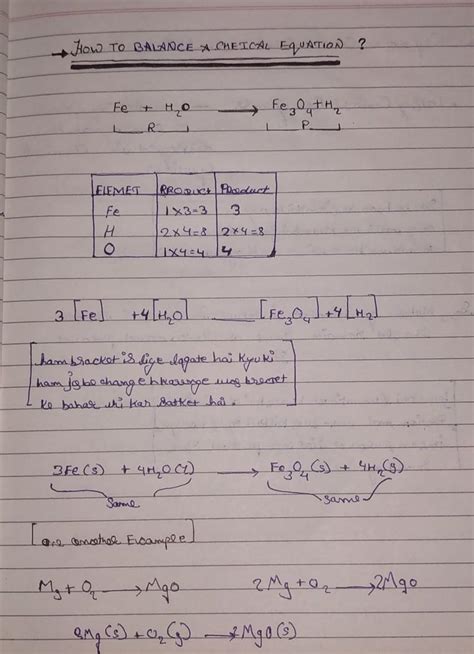 → HOW TO BALANCE A CHEICAL EQUATION ?
Fe + H₂O → Fe₃O₄+H₂
R P
ELEMET PRODUCT Product
Fe 1×3=3 3
H 2×4=8 2×4=8
O 1×4=4 4
3 [Fe] +4[H₂O] [Fe₃O₄]+4[H₂]
ham bracket is liye lagate hai kyuki
ham jo be change karenge wos
ke bahar hi kar sakte hai.
3Fe(s) + 4H₂O(l) → Fe₃O₄(s) + 4H₂(g)
Same Same
[one another Example]
Mg+O₂ → MgO 2Mg+O₂ → 2MgO
2Mg(s)+O₂(g) → 2MgO(s)